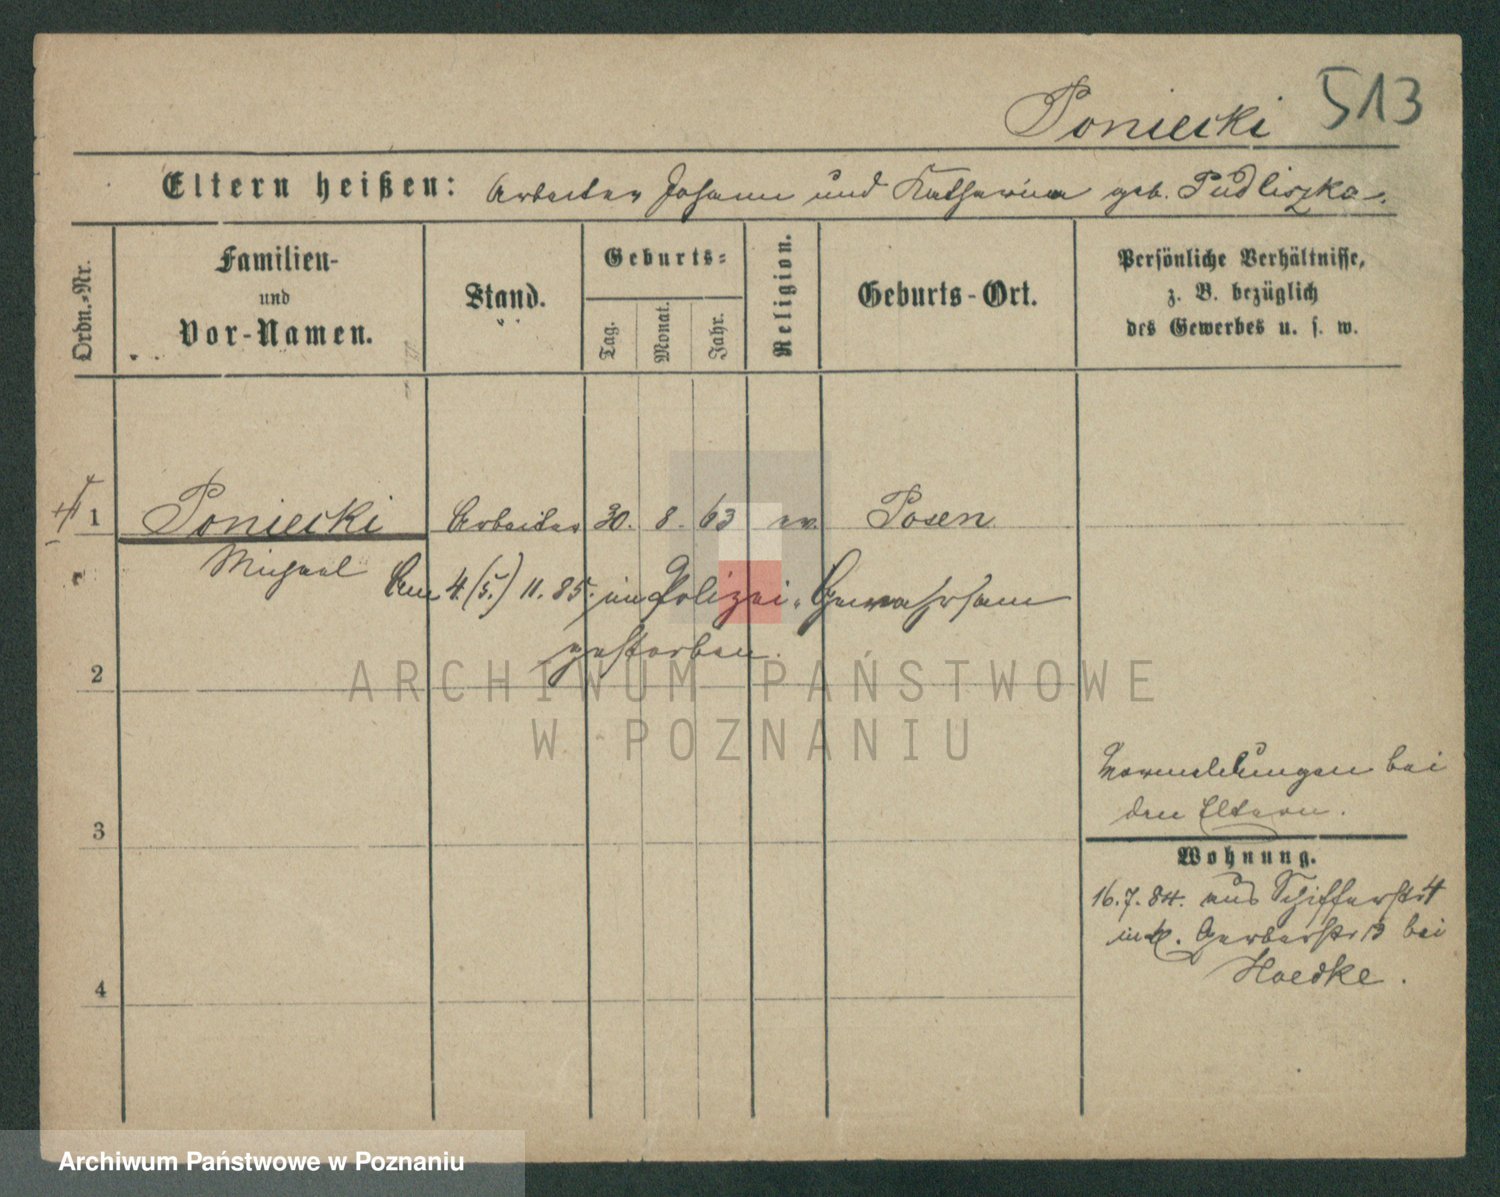 Poniecki 513
Eltern heißen: Arbeiter Johann und Katharina geb. Pudliszka.
Ordn.-Nr.
Familien-
und
Vor-Namen.
Stand.
Geburts-
Tag.
Monat.
Jahr.
Religion.
Geburts-Ort.
Persönliche Verhältnisse,
z. B. bezüglich
des Gewerbes u. s. w.
1 Poniecki Arbeiter 30. 8. 63 Posen
Michael Am 4.(5.) 11. 85. im Polizei-Gewahrsam
gestorben.
2
ARCHIWUM PAŃSTWOWE
W POZNANIU
Vormeldungen bei
den Eltern.
3
Wohnung.
16.7.84. aus Schifferstr 4
Gerberstr 13 bei
Haedke.
4
Archiwum Państwowe w Poznaniu